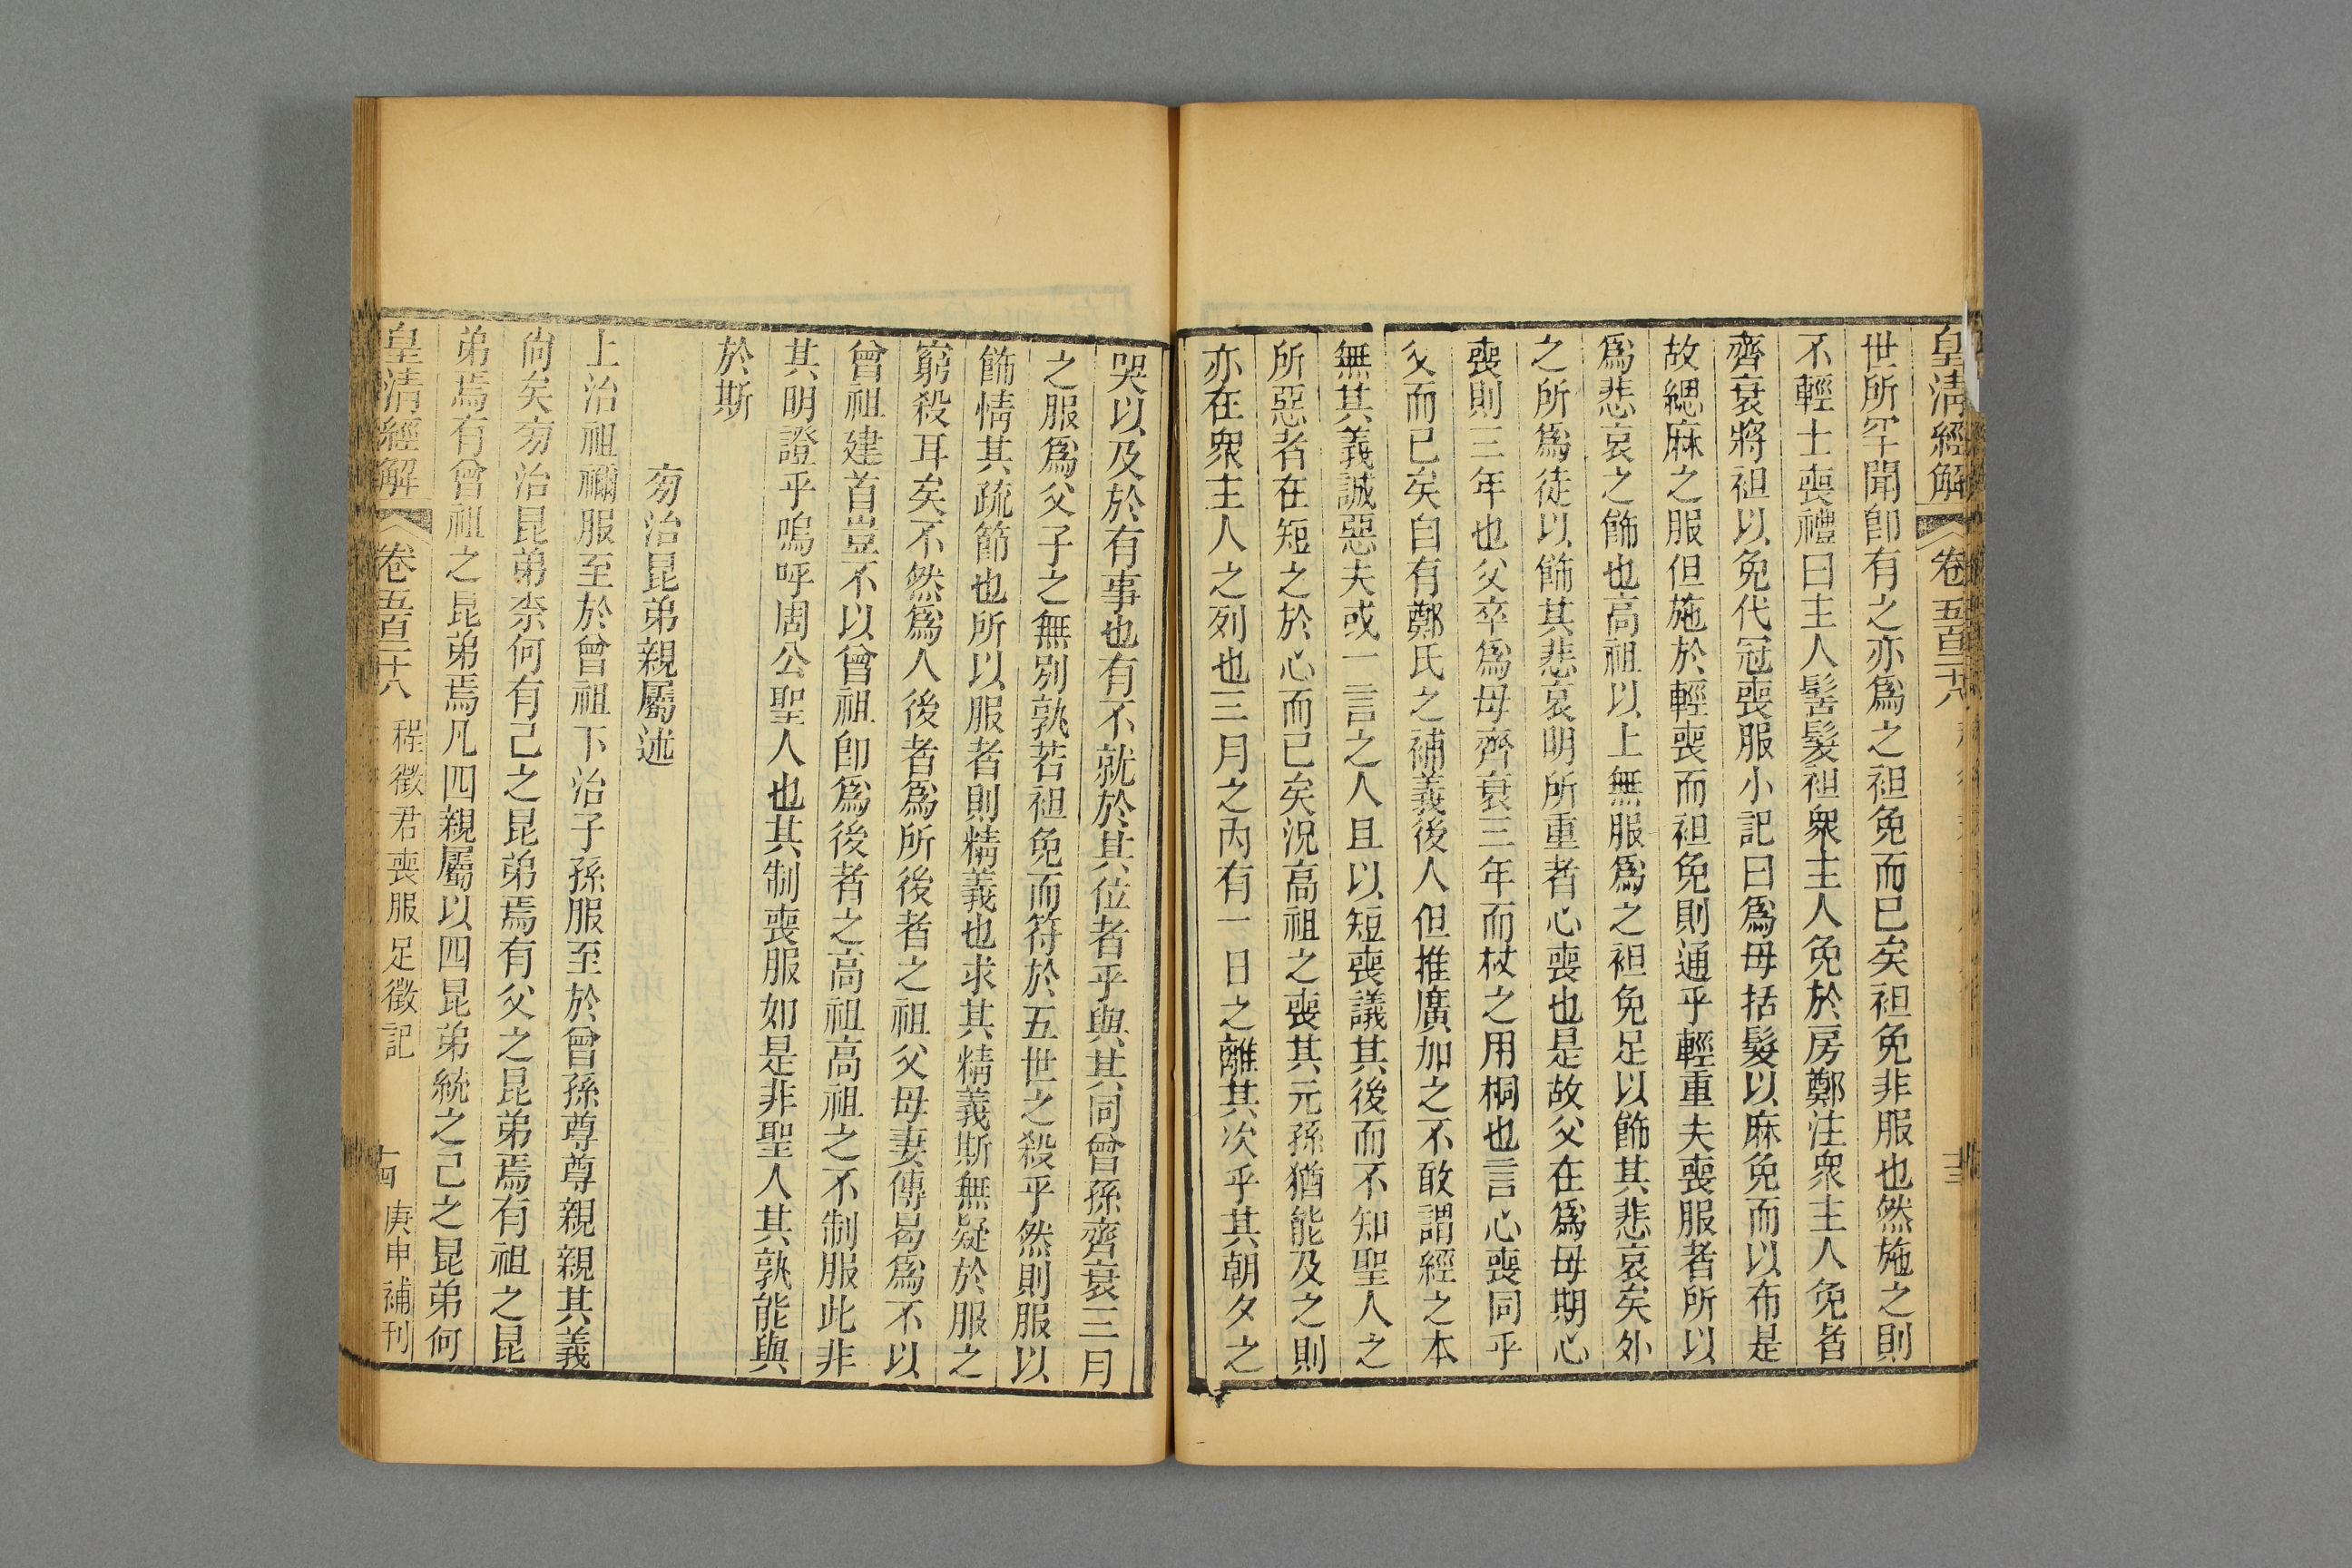 皇清經解 卷五百二十八
世所罕聞卽有之亦爲之袒免而已矣袒免非服也然施之則
不輕士喪禮曰主人髻髮袒眾主人免於房鄭注眾主人免者
齊衰將袒以免代冠喪服小記曰爲母括髮以麻免而以布是
故緦麻之服但施於輕喪而袒免則通乎輕重夫喪服者所以
爲悲哀之飾也高祖以上無服爲之袒免足以飾其悲哀矣外
之所爲徒以飾其悲哀明所重者心喪也是故父在爲母期心
喪則三年也父卒爲母齊衰三年而杖之用桐也言心喪同乎
父而已矣自有鄭氏之補義後人但推廣加之不敢謂經之本
無其義誠惡夫或一言之人且以短喪議其後而不知聖人之
所惡者在短之於心而已矣況高祖之喪其元孫猶能及之則
亦在眾主人之列也三月之內有一日之離其次乎其朝夕之
哭以及於有事也有不就於其位者乎與其同曾孫齊衰三月
之服爲父子之無別孰若袒免而符於五世之殺乎然則服以
飾情其疏節也所以服者則精義也求其精義斯無疑於服之
窮殺耳矣不然爲人後者爲所後者之祖父母妻傳曷爲不以
曾祖建首豈不以曾祖卽爲後者之高祖高祖之不制服此非
其明證乎嗚呼周公聖人也其制喪服如是非聖人其孰能與
於斯
㫄治昆弟親屬述
上治祖禰服至於曾祖下治子孫服至於曾孫尊尊親親其義
尙矣㫄治昆弟柰何有己之昆弟焉有父之昆弟焉有祖之昆
弟焉有曾祖之昆弟焉凡四親屬以四昆弟統之己之昆弟何
皇清經解 卷五百二十八 程徵君喪服足徵記 十四 庚申補刊